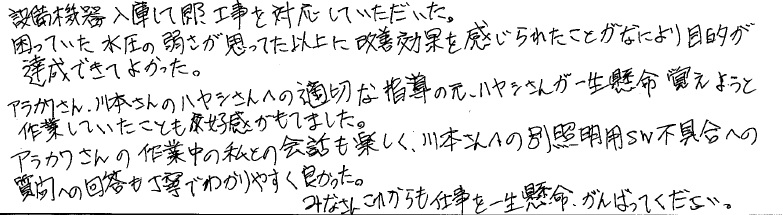 設備機器入庫して即工事を対応していただいた。
困っていた水圧の弱さが思ってた以上に改善効果を感じられたことがなにより目的が
達成できてよかった。
アラカワさん、川本さんのハヤシさんへの適切な指導の元、ハヤシさんが一生懸命覚えようと
作業していたことも好感がもてました。
アラカワさんの作業中の私との会話も楽しく、川本さんへの別照明用SW不具合への
質問への回答も丁寧でわかりやすく良かった。
みなさんこれからも仕事を一生懸命、がんばってください。